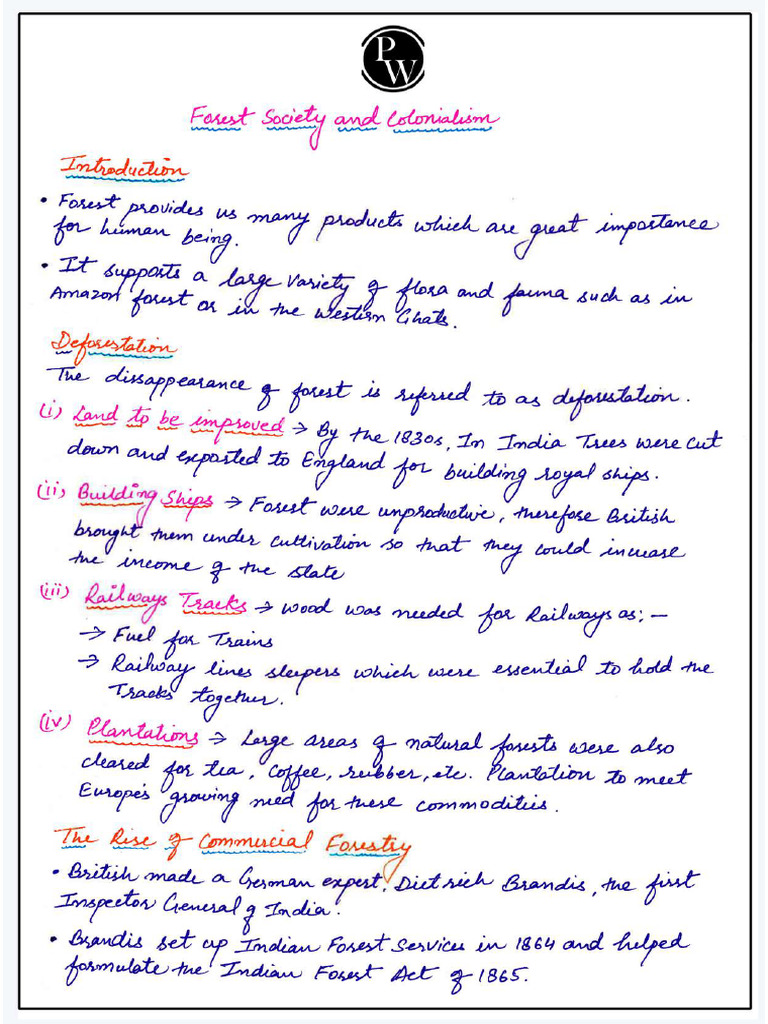 PW
Forest Society and Colonialism
Introduction
• Forest provides us many products which are great importance
for human being.
• It supports a large variety of flora and fauna such as in
Amazon forest or in the Western Ghats.
Deforestation
The dissappearance of forest is referred to as deforestation.
(i) Land to be improved → By the 1830s, In India Trees were cut
down and exported to England for building royal ships.
(ii) Building Ships → Forest were unproductive, therefore British
brought them under cultivation so that they could increase
the income of the state
(iii) Railways Tracks → wood was needed for Railways as; —
→ Fuel for Trains
→ Railway lines sleepers which were essential to hold the
Tracks together.
(iv) Plantations → Large areas of natural forests were also
cleared for tea, coffee, rubber, etc. Plantation to meet
Europe's growing need for these commodities.
The Rise of Commercial Forestry
• British made a German expert, Dietrich Brandis, the first
Inspector General of India.
• Brandis set up Indian Forest Services in 1864 and helped
formulate the Indian Forest Act of 1865.